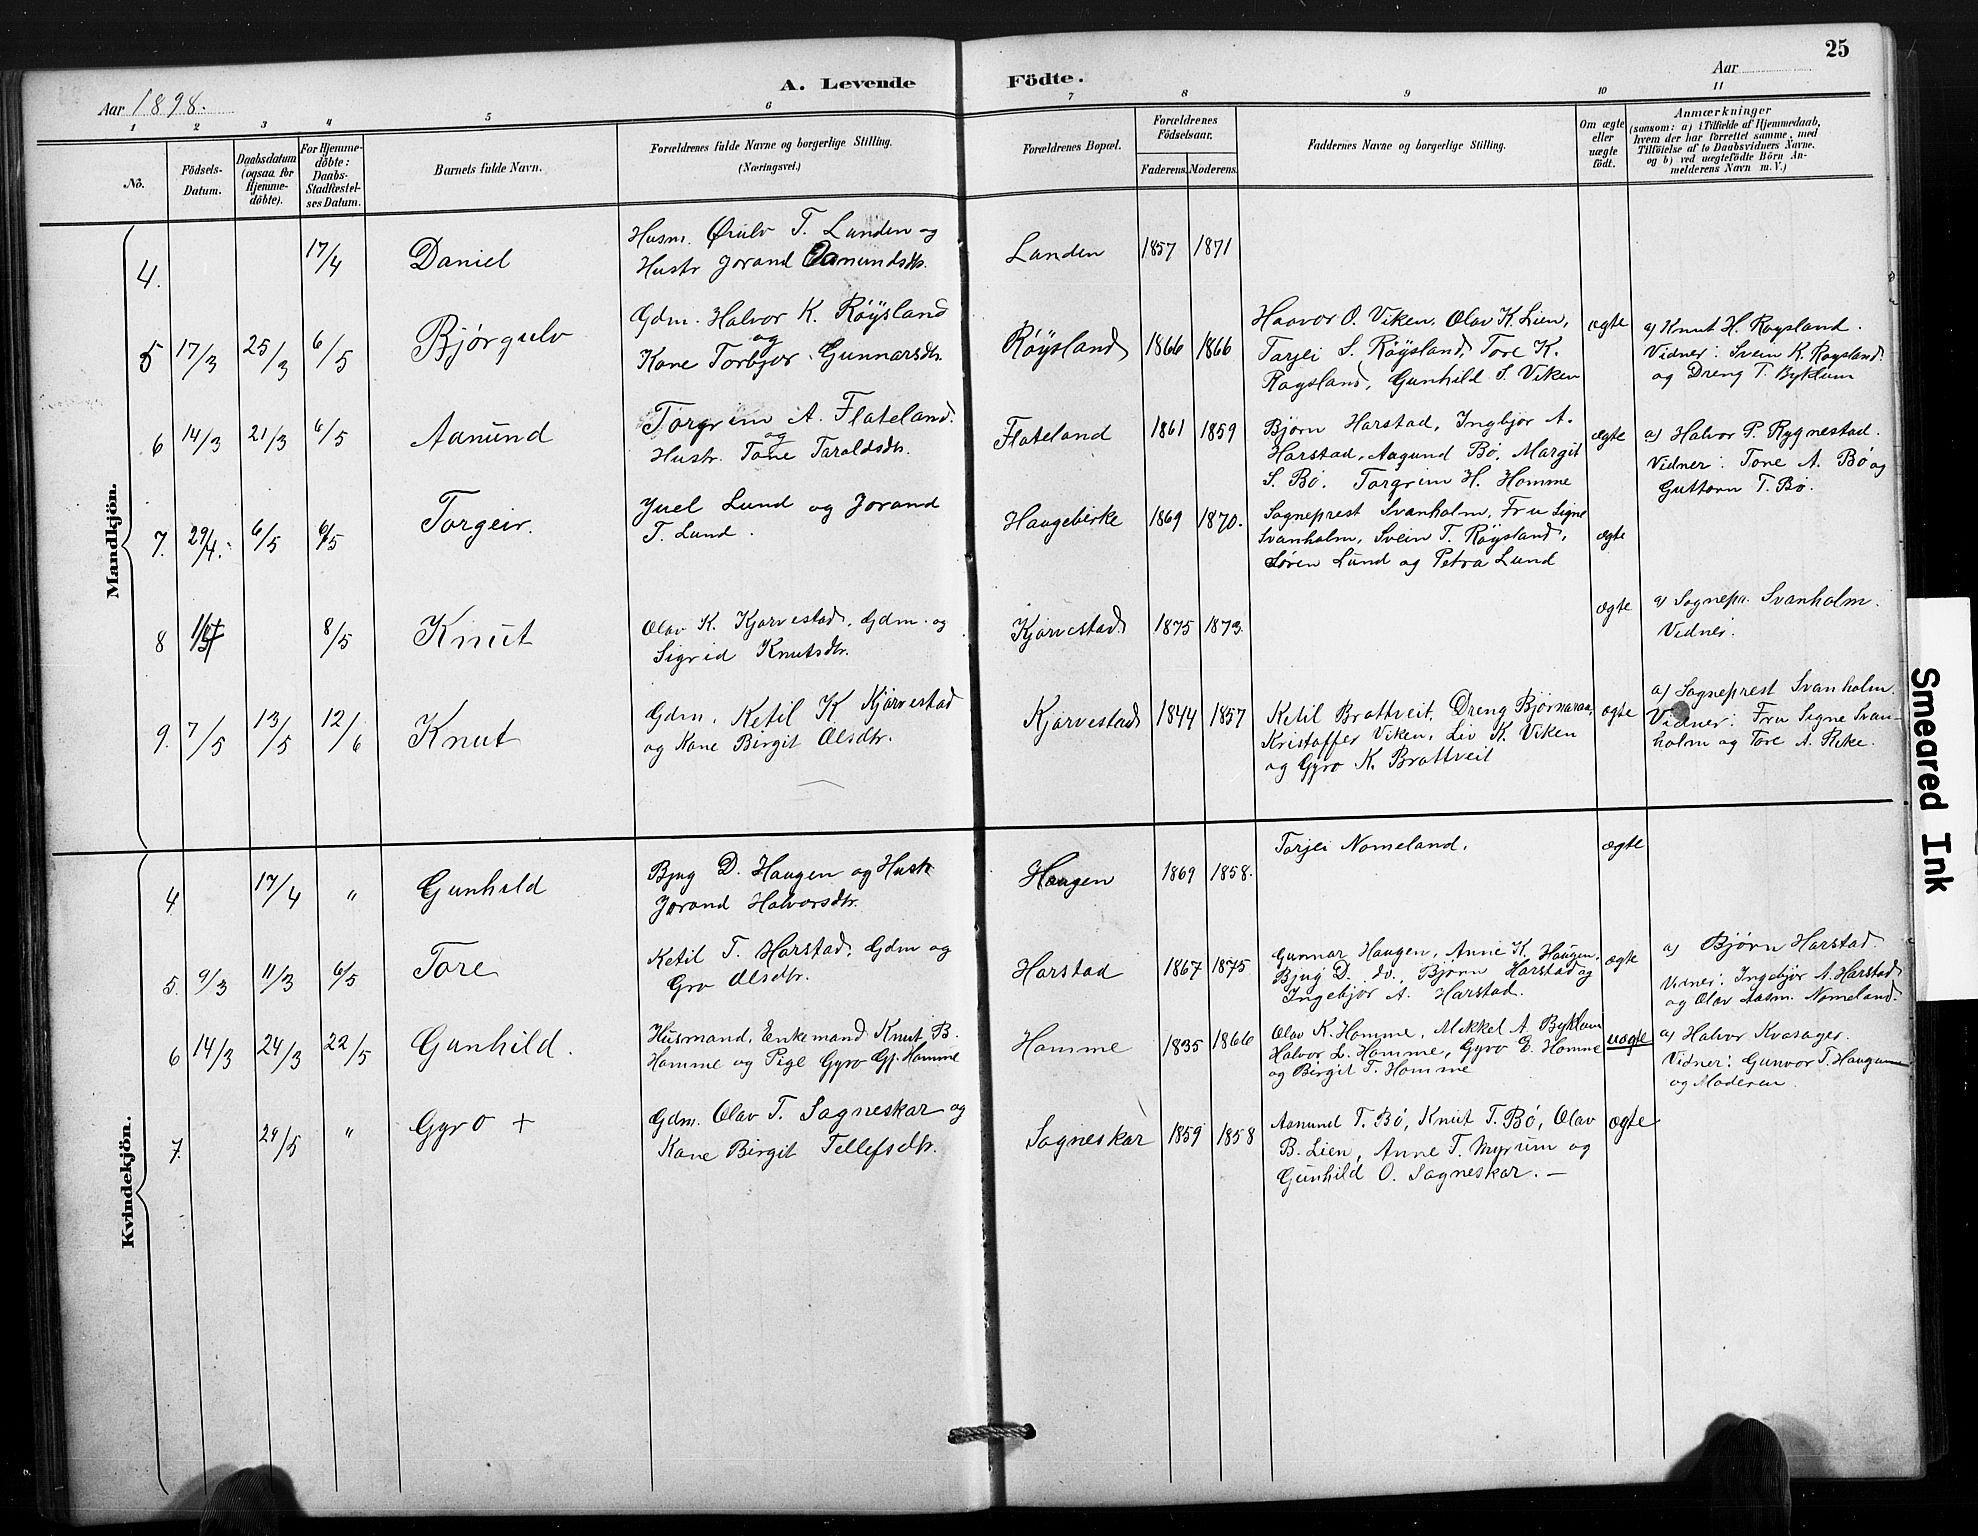 25
Aar 1898.
A. Levende Födte.
Aar
1 2 3 4 5 6 7 8 9 10 11
No.
Födsels-Datum.
Daabsdatum (ogsaa for Hjemmedöbte).
For Hjemmedöbte: Daabs-Stadfæstelses Datum.
Barnets fulde Navn.
Forældrenes fulde Navne og borgerlige Stilling.
(Næringsvei.)
Forældrenes Bopæl.
Forældrenes Födselsaar.
Faderens. Moderens.
Faddernes Navne og borgerlige Stilling.
Om ægte eller uægte født.
Anmærkninger
(saasom: a) i Tilfælde af Hjemmedaab, hvem der har forrettet samme, med Tilföielse af to Daabsvidners Navne, og b) ved uægtefödte Börn Anmelderens Navn m. V.)
Mandkjön.
4. 17/4 Daniel
Husm. Ørulv T. Lunden og
Hustr Jorand Aanundsdtr.
Lunden 1857 1871
5 17/3 25/3 6/5 Bjørgulv
Gdm. Halvor K. Röysland
og
Kone Torbjor Gunnarsdtr.
Röysland 1866 1866
Haavor O. Viken, Olav K. Lien,
Tarjei S. Röysland, Tore K.
Roysland, Gunhild S. Viken
ægte
a) Knut H. Roysland.
Vidner: Svein K. Roysland.
og Dreng T. Byklum
6 14/3 21/3 6/5 Aanund
Torgrim A. Flateland.
og
Hustr. Tone Taraldsdtr.
Flateland 1861 1859
Bjorn Harstad, Ingbjor A.
Harstad, Aagund Bø, Margit
S. Bø, Torgrim H. Homme
ægte
a) Halvor P. Rygnestad.
Vidner: Tone A. Bø og
Guttorm T. Bø.
7. 29/4. 6/5 6/5 Torgeir.
Juel Lund og Jorand
T. Lund.
Haugebirke 1869 1870.
Sogneprest Svanholm, Fru Signe
Svanholm, Svein T. Röysland,
Søren Lund og Petra Lund
ægte
8 8/5 Knut
Olav K. Kjørvestad, Gdm. og
Sigrid Knutsdtr.
Kjørvestad 1875 1873.
ægte
a) Sognepr. Svanholm.
Vidner:
9. 7/5 13/5 12/6 Knut
Gdm. Ketil K Kjørvestad
og Kone Birgit Olsdtr.
Kjørvestad 1844 1857
Ketil Brottveit, Dreng Bjørnaraa,
Kristoffer Viken, Liv K. Viken
og Gyro K. Brottveit
ægte
a) Sogneprest Svanholm.
Vidner: Fru Signe Svan-
holm og Tore A. Rike.
Kvindekjön.
4 17/4 " Gunhild
Bjug D. Haugen og Hustr
Jorand Halvorsdtr.
Haugen 1869 1858.
Torjei Nomeland.
ægte
5. 9/3 11/3 6/5 Tore
Ketil T. Harstad, Gdm og
Gro Olsdtr.
Harstad 1867 1875
Gunnar Haugen, Anne K. Haugen,
Bjug D. do., Bjørn Harstad og
Ingebjør A. Harstad.
ægte
a) Bjørn Harstad.
Vidner: Ingebjør A. Harstad
og Olav Aasm. Nomeland.
6 14/3 24/3 22/5 Gunhild.
Husmand, Enkemand Knut B.
Homme og Pige Gyro Gj. Homme
Homme 1835 1866
Olav K. Homme, Mikkel A. Byklum
Halvor L. Homme, Gyro E. Homme
og Birgit T. Homme
uægte
a) Halvor Kvasager.
Vidner: Gunvor T. Haugen
og Moderen.
7. 29/5 " Gyro +
Gdm. Olav T. Sagneskar og
Kone Birgit Tellefsdtr.
Sagneskar 1859 1858
Aanund T. Bø, Knut T. Bø, Olav
B. Lien, Anne T. Myrum og
Gunhild O. Sagneskar. —
ægte
Smeared Ink